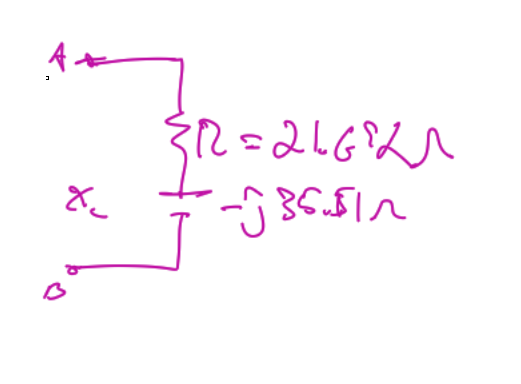 A
R = 21.692 Ω
Xc
-j 36.51 Ω
B